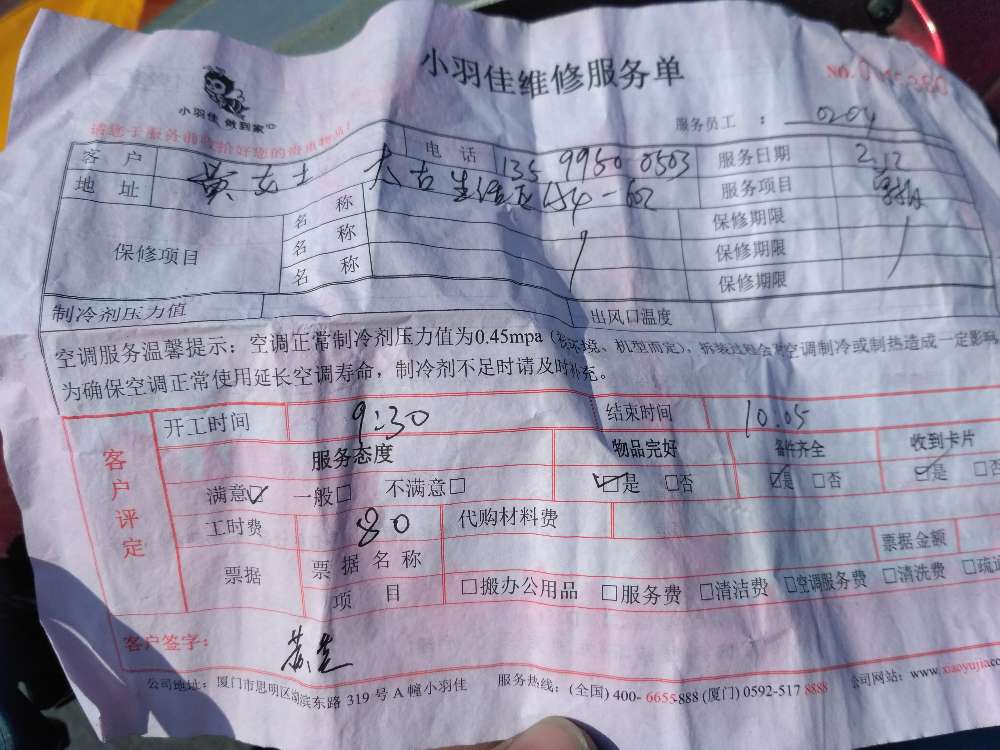 小羽佳维修服务单
NO.
小羽佳 做到家
服务员工： 0204
请您于服务前收拾好您的贵重物品！
客户 黄女士 电话 135 9950 0503 服务日期 2.12
地址 太古生活区154-602 服务项目
保修项目 名称 保修期限
名称 保修期限
名称 保修期限
制冷剂压力值 出风口温度
空调服务温馨提示：空调正常制冷剂压力值为0.45mpa（环境、机型而定），拆装过程会对空调制冷或制热造成一定影响
为确保空调正常使用延长空调寿命，制冷剂不足时请及时补充。
客户评定
开工时间 9:30 结束时间 10.05
服务态度 物品完好 备件齐全 收到卡片
满意☑ 一般□ 不满意□ ☑是 □否 ☑是 □否 ☑是 □否
工时费 80 代购材料费
票据 票据名称 票据金额
项目 □搬办公用品 □服务费 □清洁费 □空调服务费 □清洗费 □疏通
客户签字：
公司地址：厦门市思明区湖滨东路 319 号 A 幢小羽佳 服务热线：(全国) 400-6655-888 (厦门) 0592-517 8888 公司网站：www.xiaoyujia.co